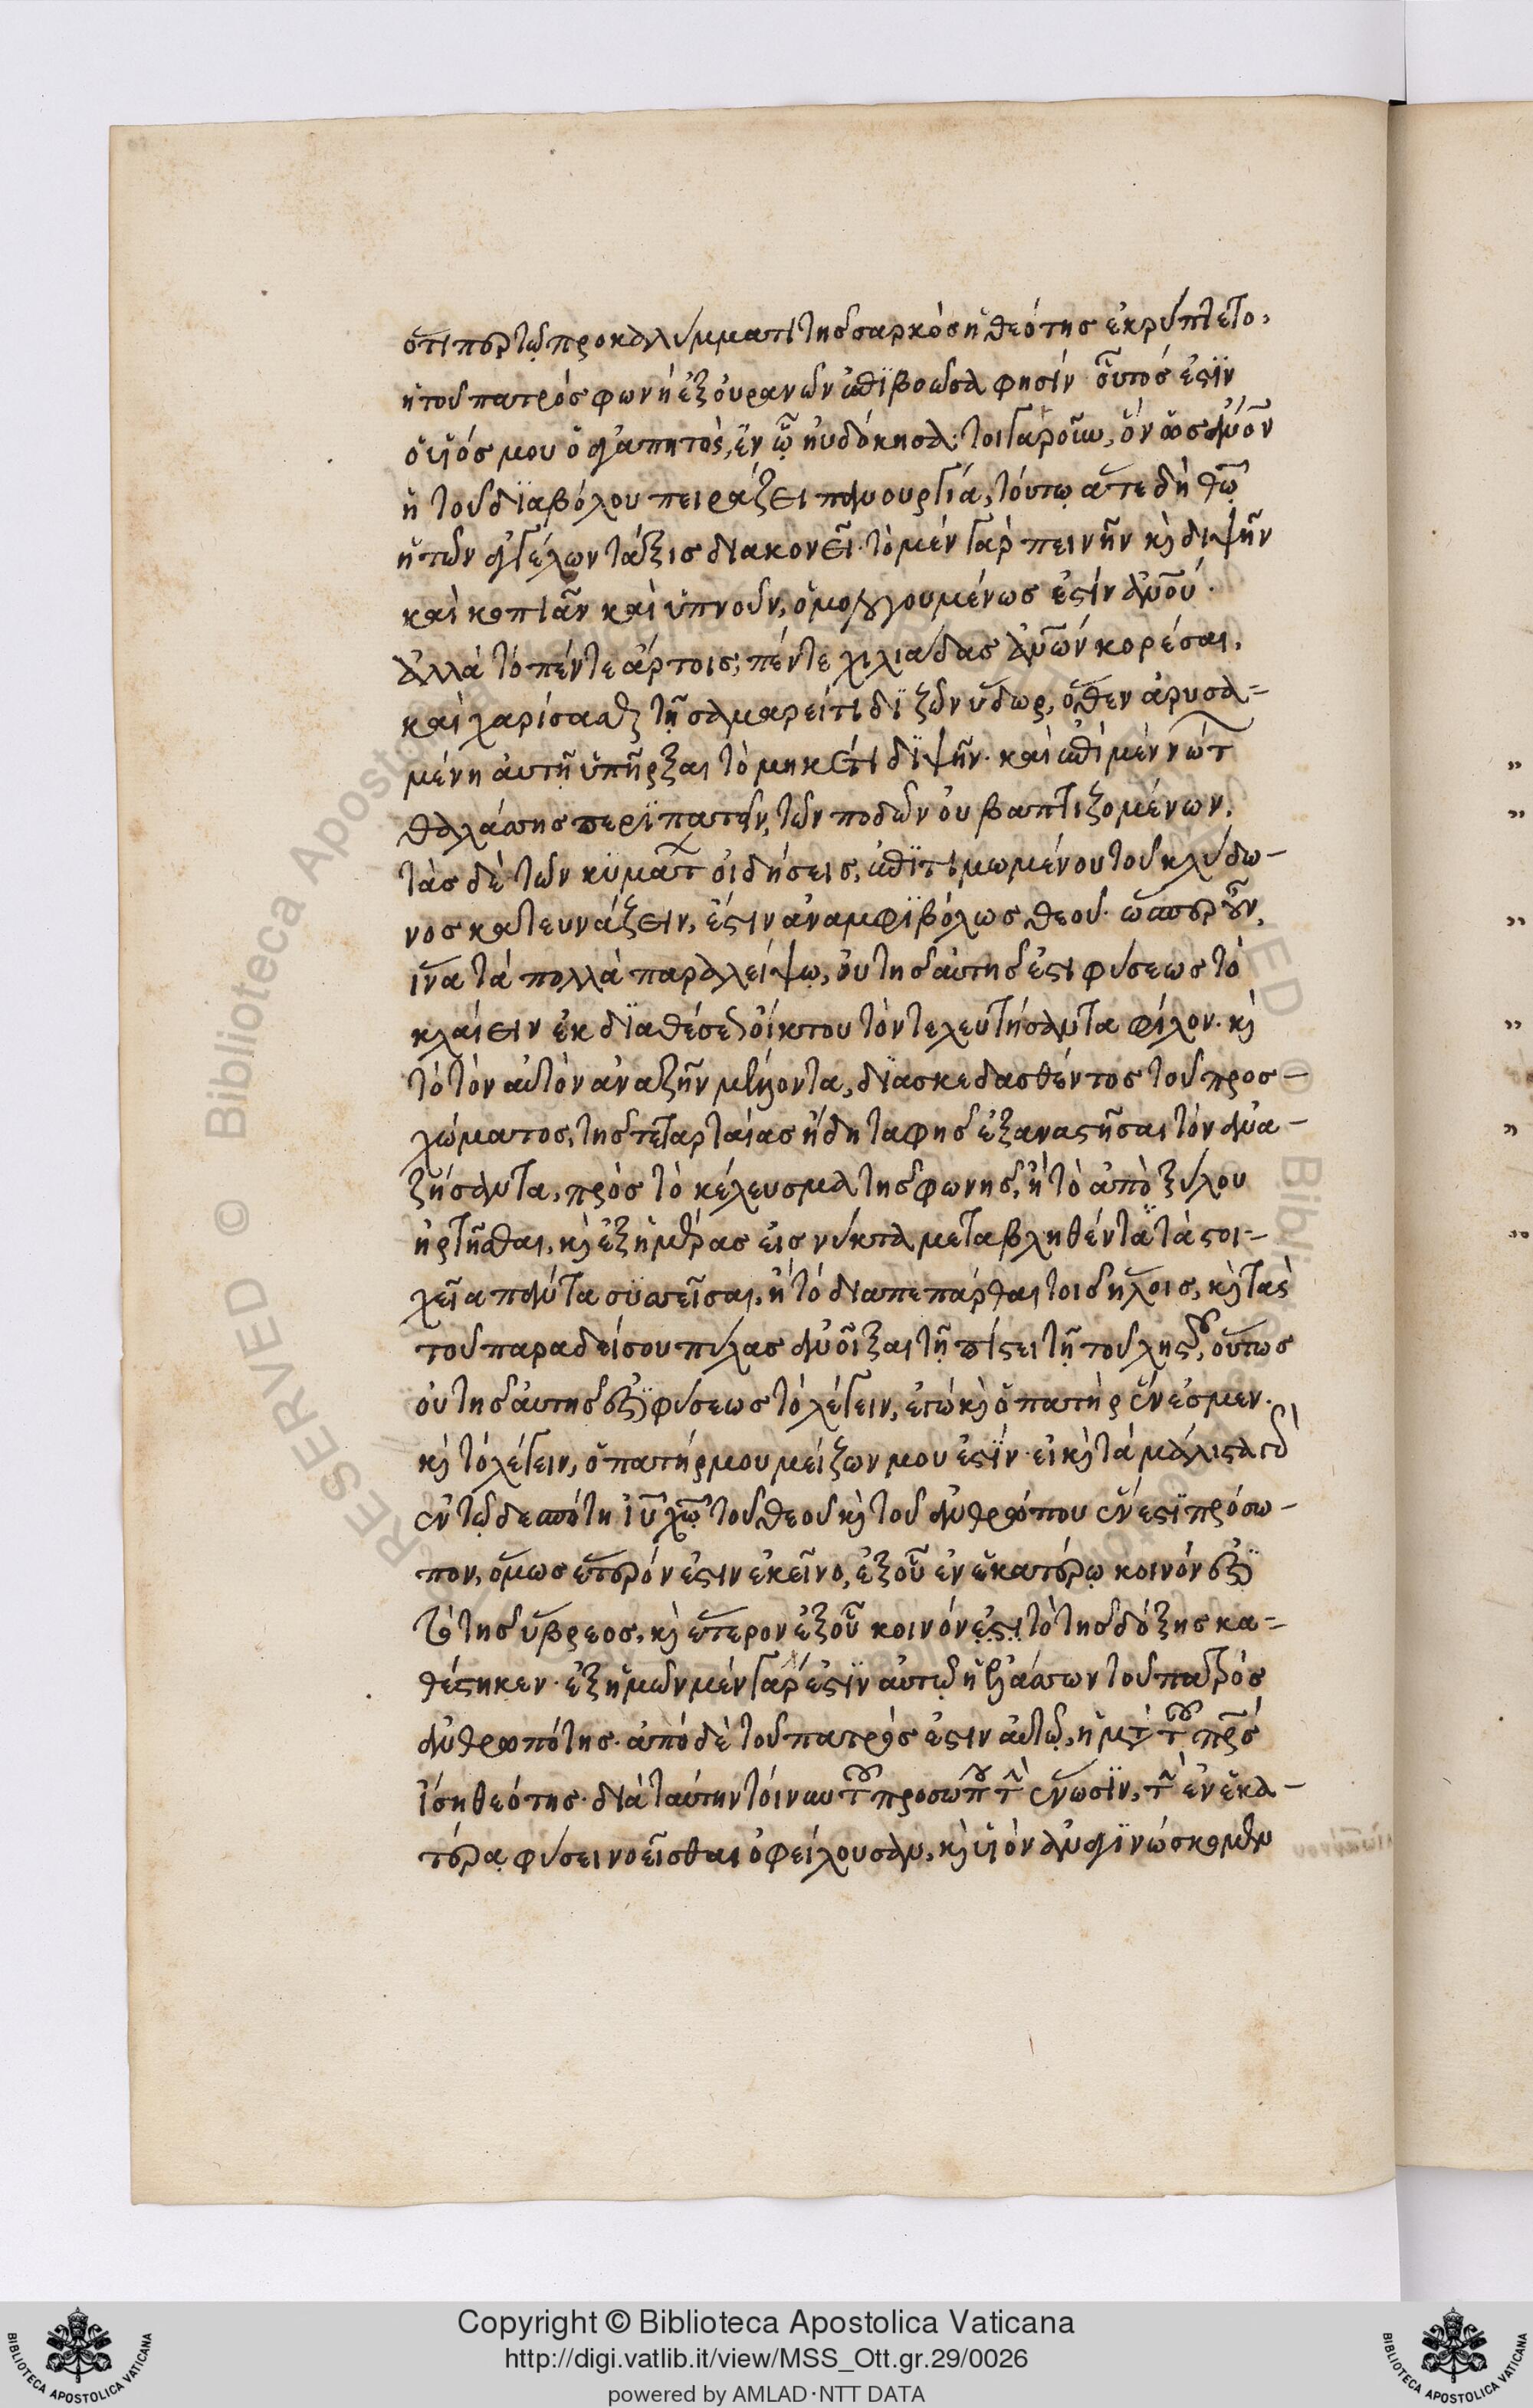 ὅτιπερ τῷ προκαλύμματι τῆς σαρκὸς ἡ θεότης ἐκρύπτετο,
ἡ τοῦ πατρὸς φωνὴ ἐξ οὐρανῶν ἐπιβοῶσα φησίν οὗτός ἐστιν
ὁ υἱός μου ὁ ἀγαπητὸς, ἐν ᾧ ηὐδόκησα· τοιγαροῦν, ὃν ὡς ἄνον
ἡ τοῦ διαβόλου πειράζει πανουργία, τούτῳ ἅτε δὴ θῶ
ἡ τῶν ἀγγέλων τάξις διακονεῖ· τὸ μὲν γὰρ πεινῆν κ διψῆν
καὶ κοπιᾶν καὶ ὑπνοῦν, ὁμολογουμένως ἐστὶν ἀνου·
ἀλλὰ τὸ πέντε ἄρτοις, πέντε χιλιάδας ἀνων κορέσαι,
καὶ χαρίσασθαι τῇ σαμαρείτιδι ζῶν ὕδωρ, ὅθεν ἀρυσα=
μένη αὐτῇ ὑπῆρξαι τὸ μηκέτι διψῆν· καὶ ἐπὶ μὲν νώτ
θαλάσσης περιπατεῖν, τῶν ποδῶν οὐ βαπτιζομένων,
τὰς δὲ τῶν κυμάτ οἰδήσεις, ἐπιτιμωμένου τοῦ κλύδω-
νος κατευνάζειν, ἔστιν ἀναμφιβόλως θεοῦ· ὥσπερ οὖν,
ἵνα τὰ πολλὰ παραλείψω, οὐ τῆς αὐτῆς ἐστι φύσεως τὸ
κλαίειν ἐκ διαθέσεως οἴκτου τὸν τελευτήσαντα φίλον· κ
τὸ τὸν αὐτὸν ἀναζῆν μέλλοντα, διασκεδασθέντος τοῦ προσ-
χώματος, τῆς τεταρταίας ἤδη ταφῆς ἐξαναστῆσαι τὸν ἀνα-
ζήσαντα, πρὸς τὸ κέλευσμα τῆς φωνῆς, ἢ τὸ ἀπὸ ξύλου
ἠρτῆσθαι, κ ἐξ ἡμέρας εἰς νύκτα μεταβληθέντα τὰ στοι-
χεῖα πάντα συσσεῖσαι, ἢ τὸ διαπεπάρθαι τοῖς ἥλοις, κ τὰς
τοῦ παραδείσου πύλας ἀνοῖξαι τῇ πίστει τῇ τοῦ λῃστοῦ, οὕτως
οὐ τῆς αὐτῆς ἐστι φύσεως τὸ λέγειν, ἐγὼ κ ὁ πατὴρ ἕν ἐσμεν·
κ τὸ λέγειν, ὁ πατήρ μου μείζων μου ἐστίν· εἰ κ τὰ μάλιστα γὰρ
ἐν τῷ δεσπότῃ ἰῦ χῶ τοῦ θεοῦ κ τοῦ ἀνθρώπου ἕν ἐστι πρόσω-
πον, ὅμως ἕτερόν ἐστιν ἐκεῖνο, ἐξ οὗ ἐν ἑκατέρῳ κοινόν ἐστι
τὸ τῆς ὕβρεος, κ ἕτερον ἐξ οὗ κοινόν ἐστι τὸ τῆς δόξης κα=
θέστηκεν· ἐξ ἡμῶν μὲν γάρ ἐστιν αὐτῷ ἡ ἐλάσσων τοῦ πατρὸς
ἀνθρωπότης· ἀπὸ δὲ τοῦ πατρός ἐστιν αὐτῷ, ἡ μετὰ τοῦ πρς
ἴση θεότης· διὰ ταύτην τοίνυν τοῦ προσώπου τὴν ἕνωσιν, τὴν ἐν ἑκα-
τέρᾳ φύσει νοεῖσθαι ὀφείλουσαν, κ υἱὸν ἀνου γινώσκομεν
Copyright © Biblioteca Apostolica Vaticana
http://digi.vatlib.it/view/MSS_Ott.gr.29/0026
powered by AMLAD·NTT DATA